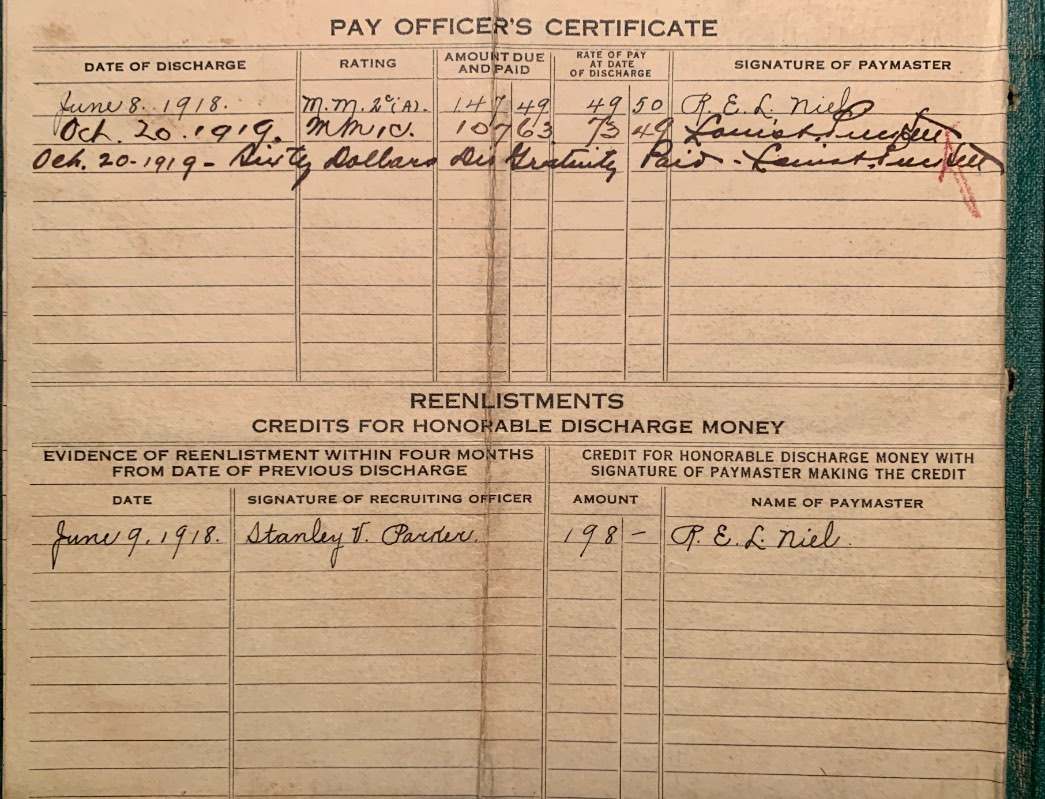 PAY OFFICER'S CERTIFICATE
DATE OF DISCHARGE RATING AMOUNT DUE AND PAID RATE OF PAY AT DATE OF DISCHARGE SIGNATURE OF PAYMASTER
June 8. 1918. M.M. 2c (A). 147 49 49 50 R. E. L. Niel
Oct. 20. 1919. MM1C. 107 63 73 49
Oct. 20-1919 - Sixty Dollars Dis Gratuity Paid -
REENLISTMENTS
CREDITS FOR HONORABLE DISCHARGE MONEY
EVIDENCE OF REENLISTMENT WITHIN FOUR MONTHS FROM DATE OF PREVIOUS DISCHARGE
CREDIT FOR HONORABLE DISCHARGE MONEY WITH SIGNATURE OF PAYMASTER MAKING THE CREDIT
DATE SIGNATURE OF RECRUITING OFFICER AMOUNT NAME OF PAYMASTER
June 9. 1918. Stanley V. Parker. 198 - R. E. L. Niel.